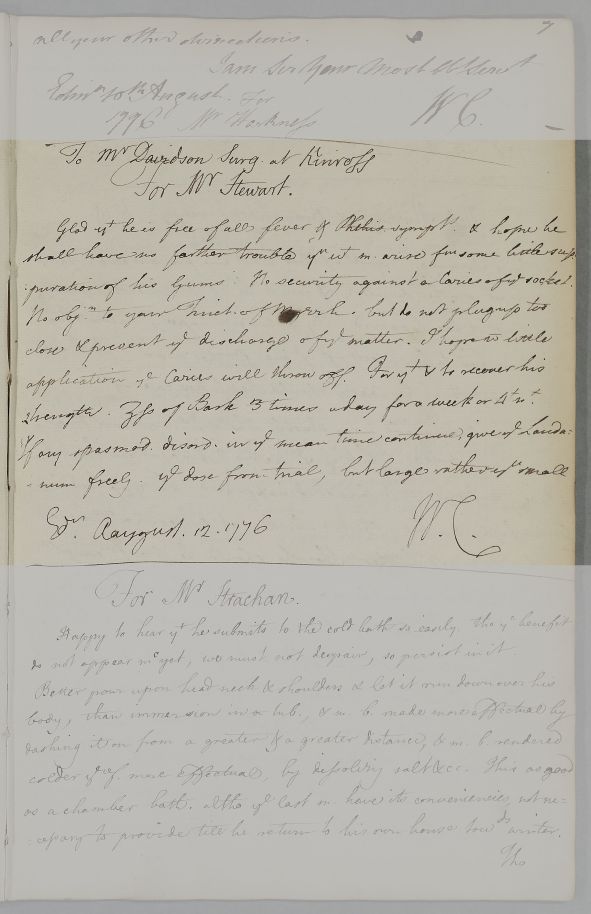 7
all your other directions.
I am Sir Your Most Ob Servt
Edinr 10th August. For
1776 Mr Harkness W.C.
To Mr Davidson Surg. at Kinross
For Mr Stewart.
Glad yt he is free of all fever & Phthis. sympt. & hope he
shall have no farther trouble yn wt m. arise from some little sup-
puration of his Gums. No security against a Caries of ye socket.
No obj.n to your Tinct. of Myrrh. but do not plug up too
close & prevent ye discharge of ye matter. I hope wt little
application ye Caries will throw off. For yt & to recover his
strength. Zss of Bark 3 times a day for a week or 4t nt.
If any spasmod. disord. in ye mean time continue, give ye Lauda-
num freely. ye dose from trial, but large rather yn small
Edr. Aaugust. 12. 1776 W.C.
For Mr Strachan.
Happy to hear yt he submits to the cold bath so easily. tho ye benefit
do not appear as yet, we must not despair, so persist in it.
Better pour upon head neck & shoulders & let it run down over his
body, than immersion in a tub, & m. b. made more effectual by
dashing it on from a greater & a greater distance, & m. b. rendered
colder & yrf. more effectual, by dissolving salt &cc. This as good
as a chamber bath. altho ye last m. have its conveniencies, not ne-
cessary to provide till he return to his own house towds winter.
Tho